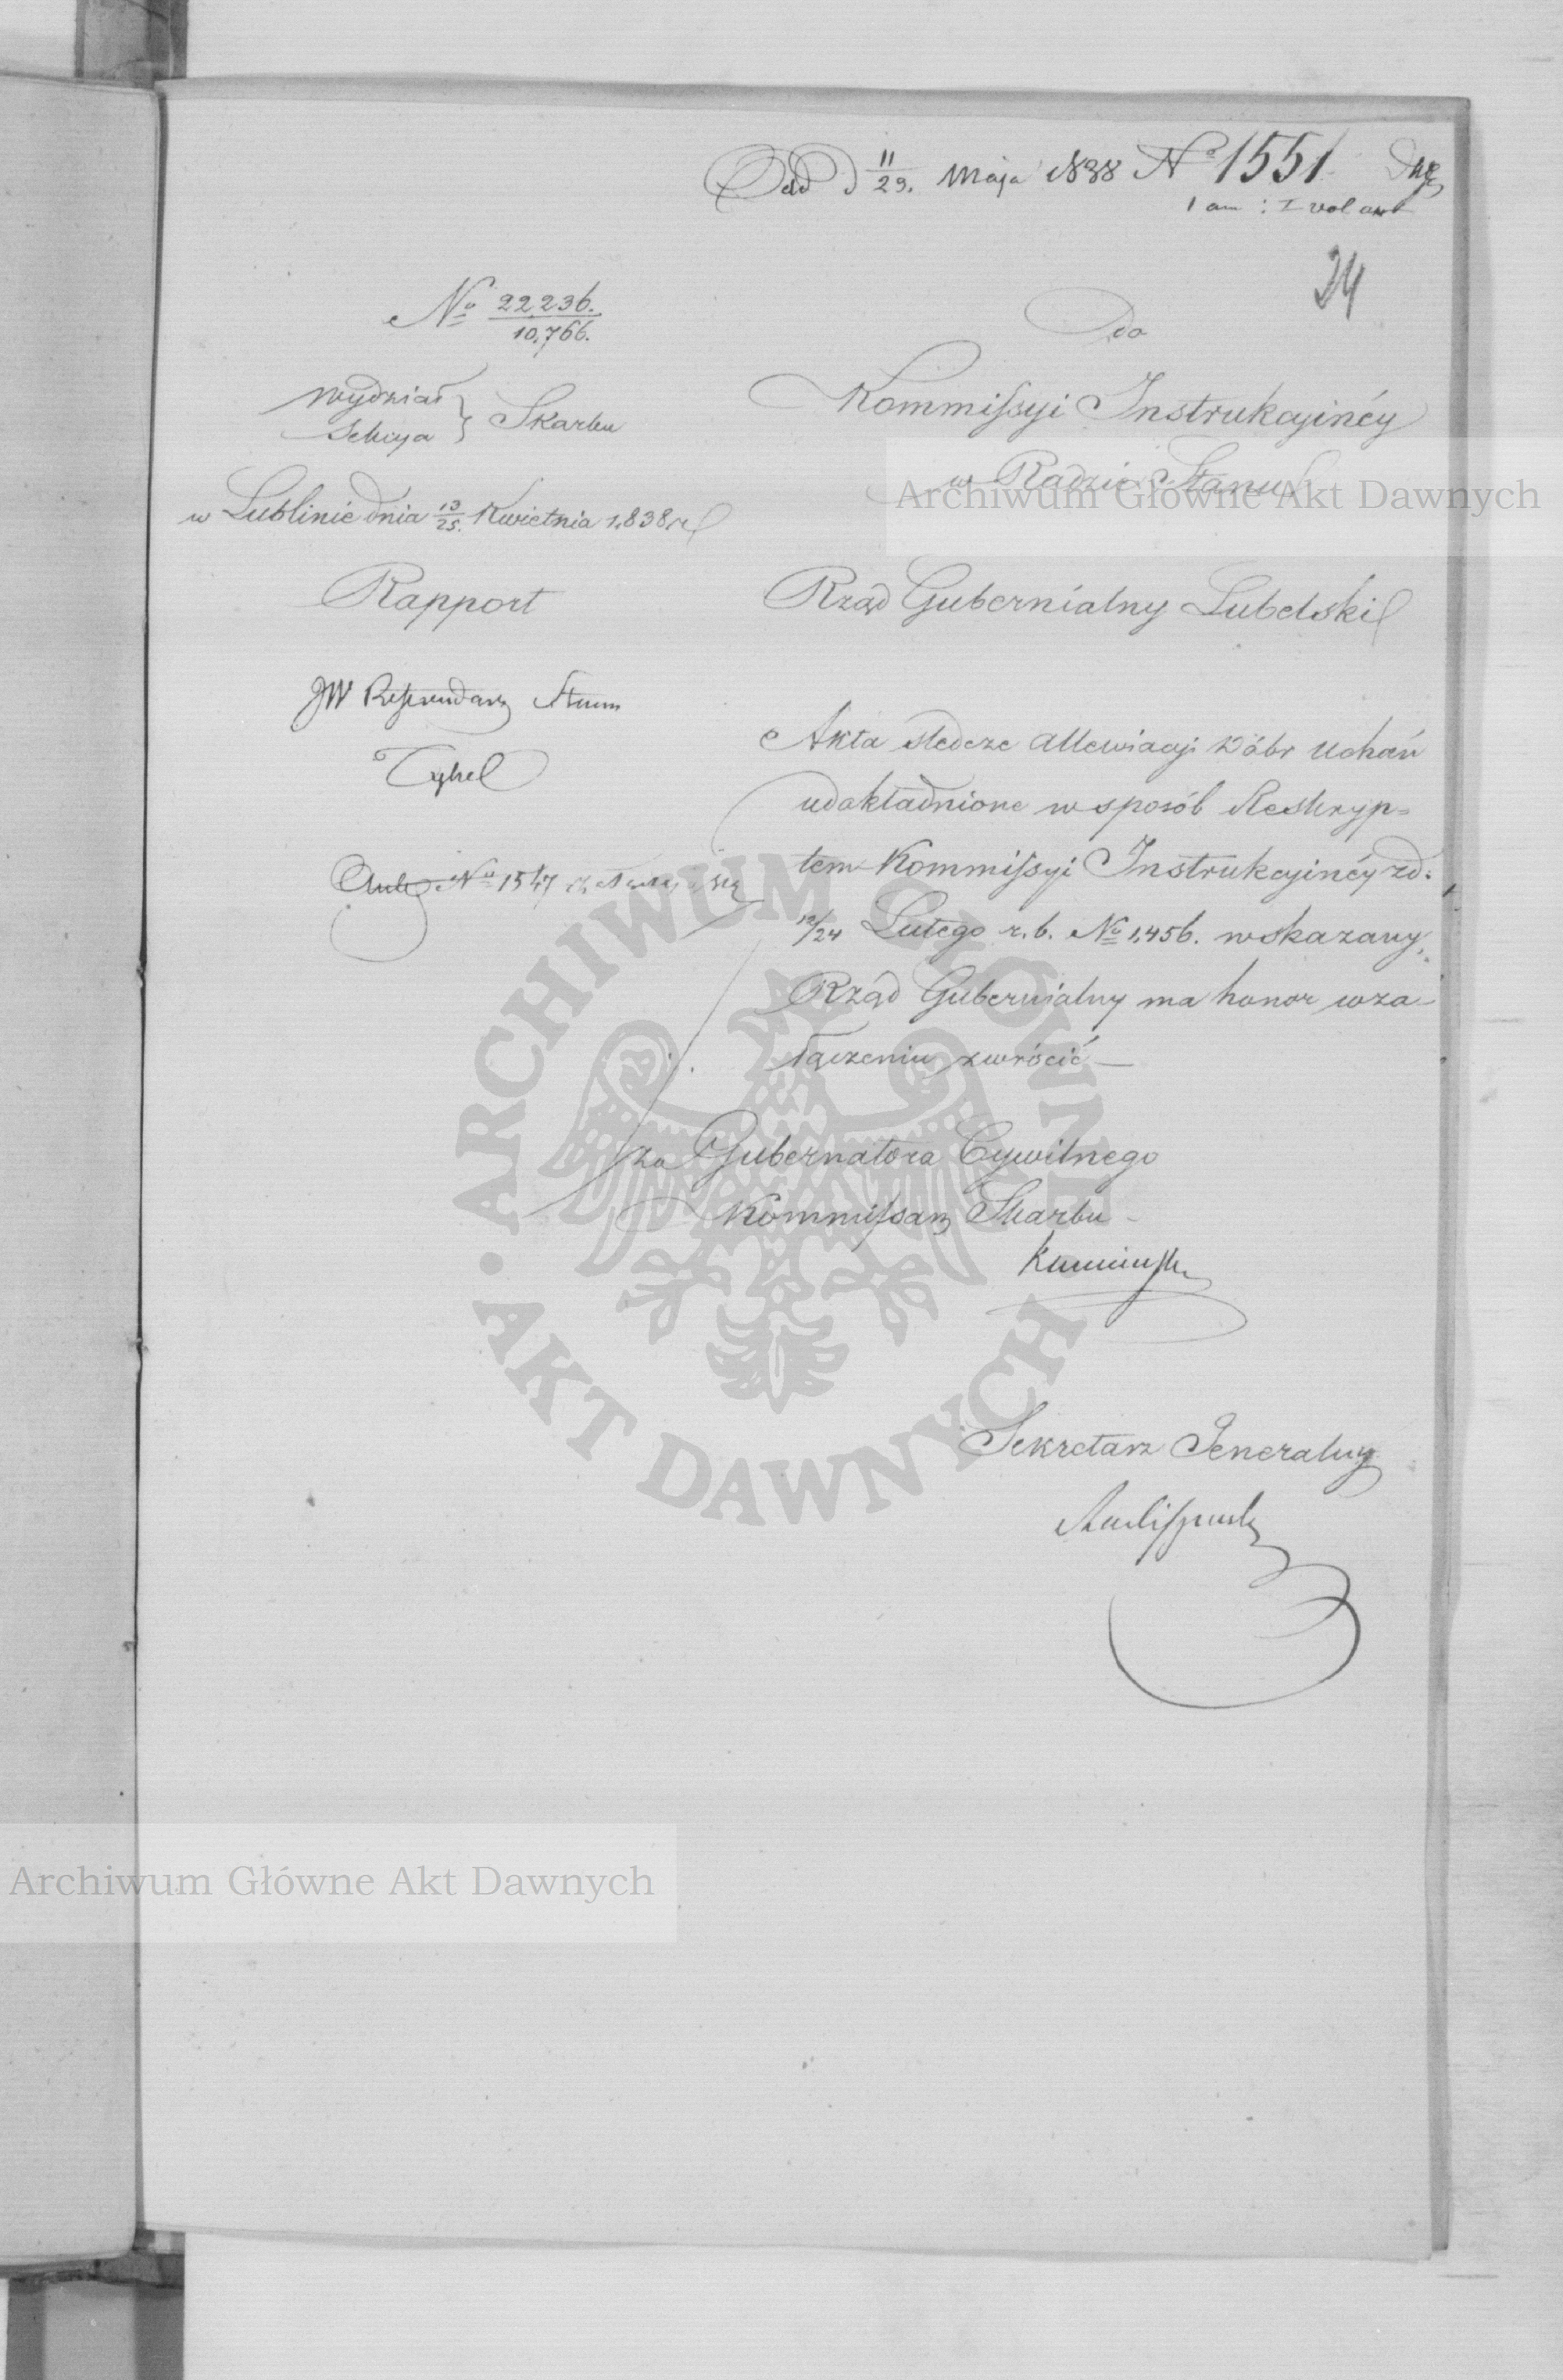 Odd d 11/23. Maja 1838 No 1551
1 an : I vol akt
24
No 22,236./10,766.
Wydział
Sekcya } Skarbu
w Lublinie dnia 13/25. Kwietnia 1,838 r.
Rapport
JW Referendarz Stanu
Tykel
No 1547
Do
Kommissyi Instrukcyinéy
w Radzie Stanu
Rząd Gubernialny Lubelski
Akta śledcze allewiacyi Dóbr Uchań
udokładnione w sposób Reskryp=
tem Kommissyi Instrukcyinéy z d:
12/24 Lutego r. b. No 1,456. wskazany,
Rząd Gubernialny ma honor w za-
łączeniu zwrócić —
za Gubernatora Cywilnego
Kommissarz Skarbu
Sekretarz Jeneralny
Archiwum Główne Akt Dawnych
ARCHIWUM GŁÓWNE
AKT DAWNYCH
Archiwum Główne Akt Dawnych